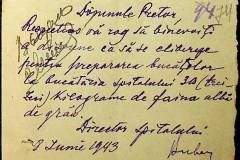 Domnule Pretor,
Respectuos vă rog să binevoiți
a dispune ca să se elibereze
pentru prepararea bucatelor
la bucătăria spitalului 30 (trei
zeci) kilograme de faina albă
de grau.
Directorul spitalului
2 Iunie 1943